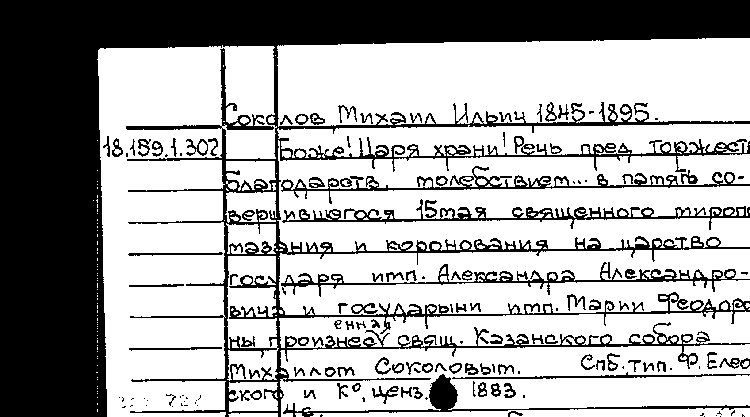 Соколов Михаил Ильич 1845-1895.
18.159.1.302 Боже! Царя храни! Речь пред торжест
благодарств. молебствием... в память со-
вершившегося 15 мая священного миропо
мазания и коронования на царство
государя имп. Александра Александро-
вича и государыни имп. Марии Феодоро
енная
ны произнесV свящ. Казанского собора
Михаилом Соколовым. Спб. тип. Ф. Елео
ского и К°, ценз. 1883.
4с.